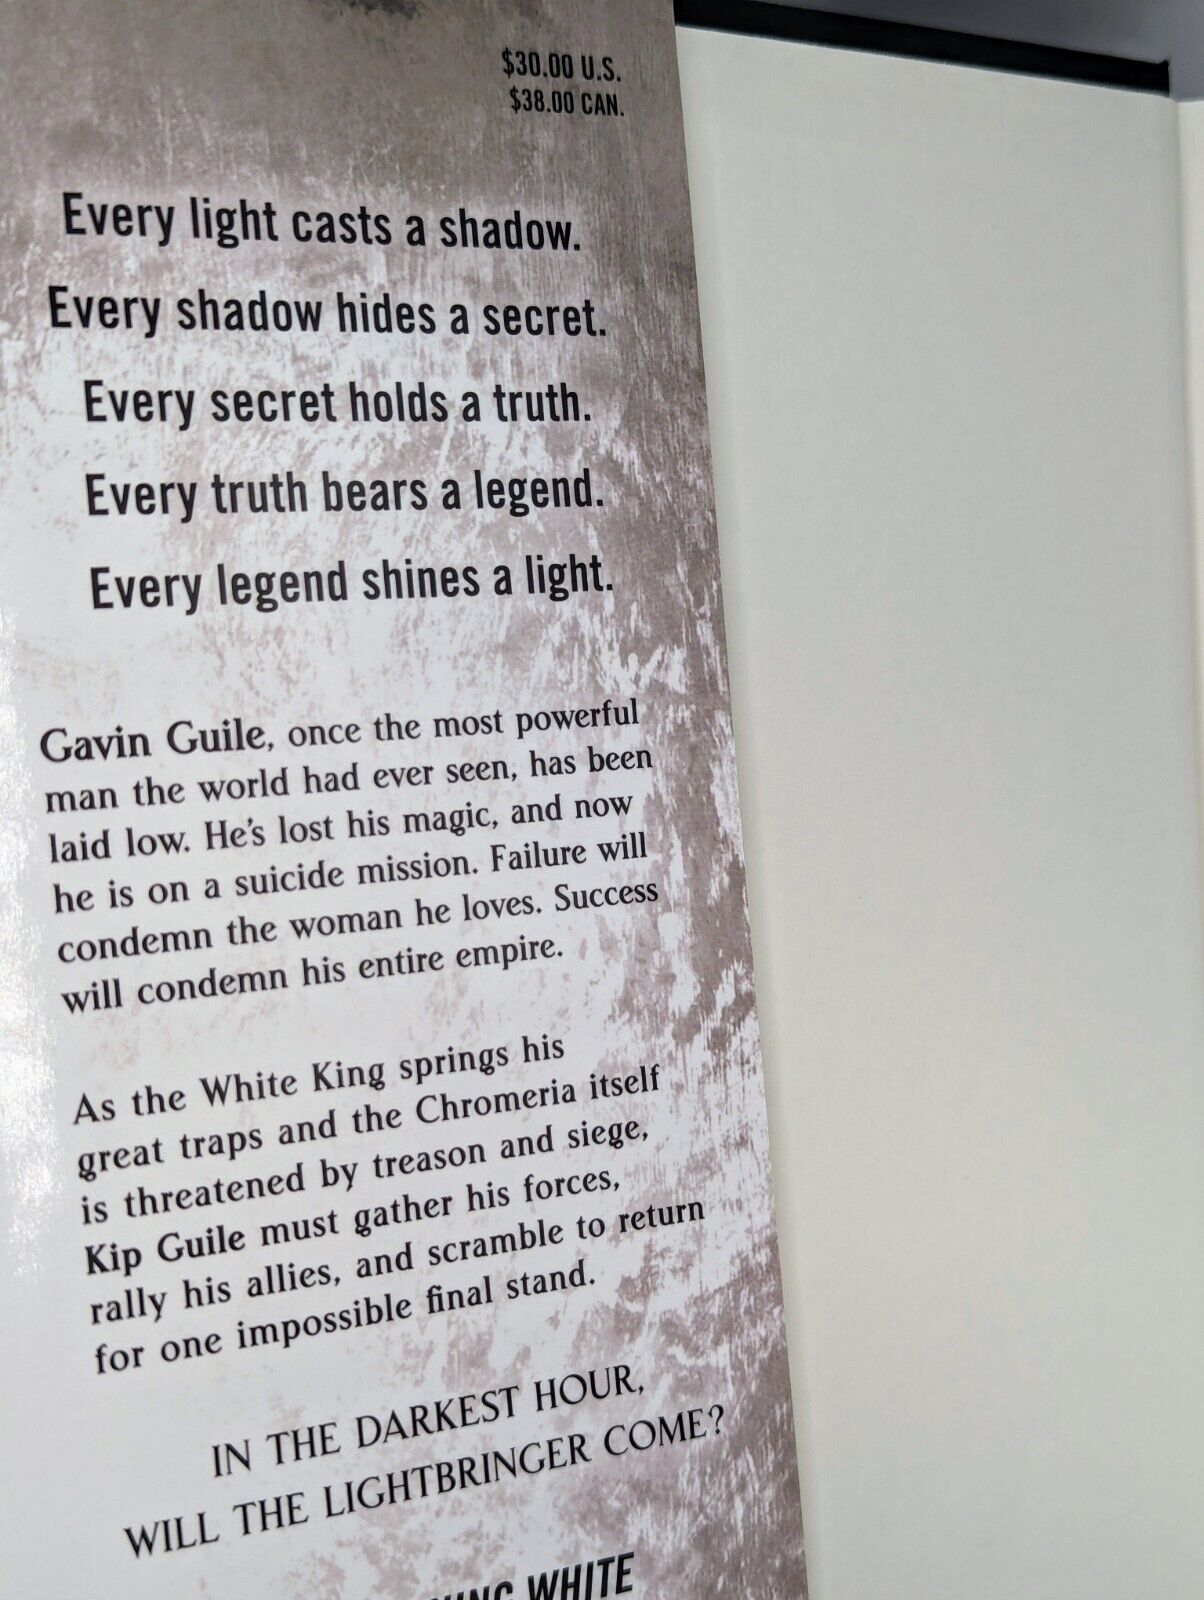 $30.00 U.S.
$38.00 CAN.
Every light casts a shadow.
Every shadow hides a secret.
Every secret holds a truth.
Every truth bears a legend.
Every legend shines a light.
Gavin Guile, once the most powerful
man the world had ever seen, has been
laid low. He's lost his magic, and now
he is on a suicide mission. Failure will
condemn the woman he loves. Success
will condemn his entire empire.
As the White King springs his
great traps and the Chromeria itself
is threatened by treason and siege,
Kip Guile must gather his forces,
rally his allies, and scramble to return
for one impossible final stand.
IN THE DARKEST HOUR,
WILL THE LIGHTBRINGER COME?
WHITE